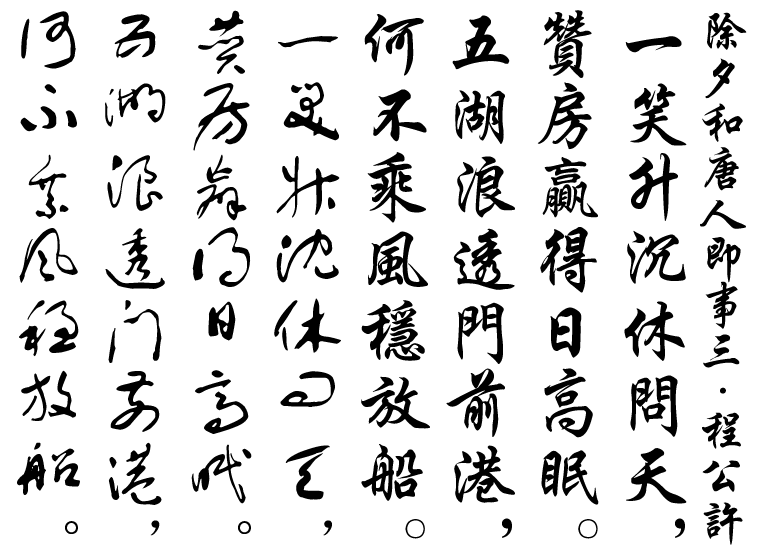 除夕和唐人即事三·程公許
一笑升沉休問天，
贊房贏得日高眠。
五湖浪透門前港，
何不乘風穩放船。
一笑升沈休问天，
赞房赢得日高眠。
五湖浪透门前港，
何不乘风稳放船。